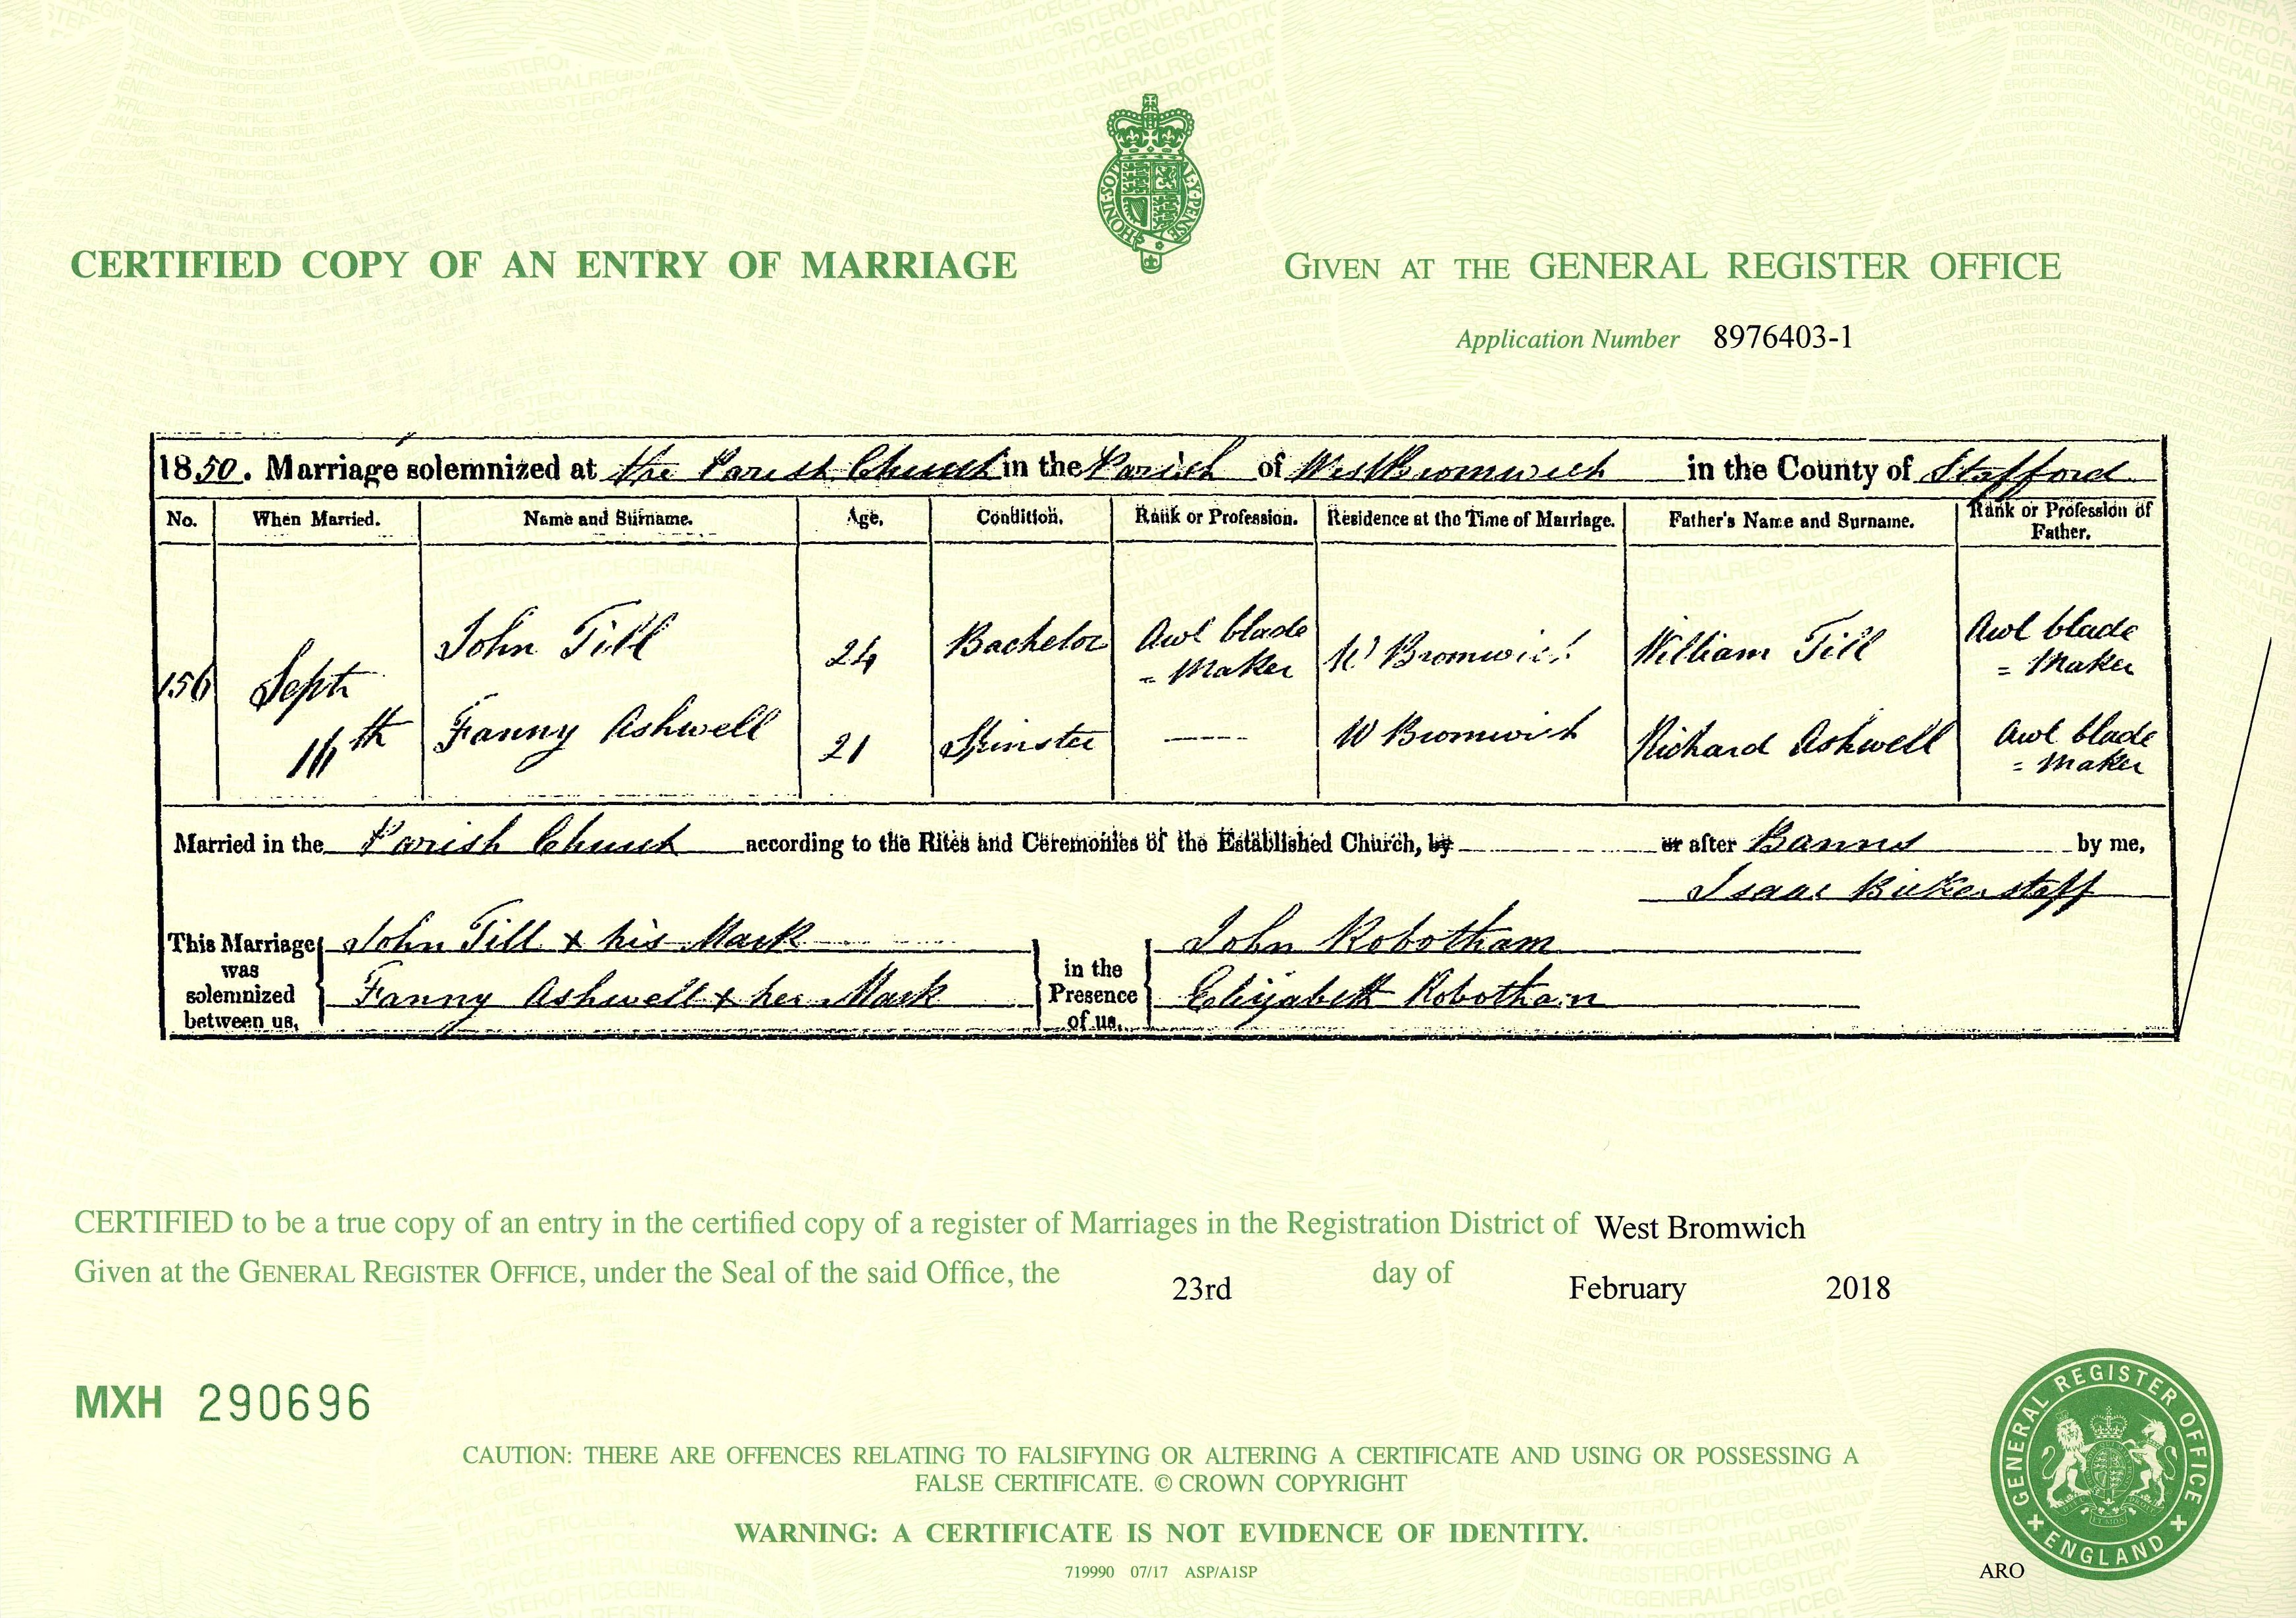 HONI·SOIT·QUI·MAL·Y·PENSE
CERTIFIED COPY OF AN ENTRY OF MARRIAGE
GIVEN AT THE GENERAL REGISTER OFFICE
Application Number 8976403-1
1850. Marriage solemnized at the Parish Church in the Parish of West Bromwich in the County of Stafford
No. When Married. Name and Surname. Age. Condition. Rank or Profession. Residence at the Time of Marriage. Father's Name and Surname. Rank or Profession of Father.
156 Sept 16th
John Till 24 Bachelor Awl blade = Maker W Bromwich William Till Awl blade = Maker
Fanny Ashwell 21 Spinster W Bromwich Richard Ashwell Awl blade = Maker
Married in the Parish Church according to the Rites and Ceremonies of the Established Church, by or after Banns by me,
Isaac Bickerstaff
This Marriage was solemnized between us, John Till x his Mark
Fanny Ashwell x her Mark
in the Presence of us, John Robotham
Elizabeth Robotham
CERTIFIED to be a true copy of an entry in the certified copy of a register of Marriages in the Registration District of West Bromwich
Given at the GENERAL REGISTER OFFICE, under the Seal of the said Office, the 23rd day of February 2018
MXH 290696
CAUTION: THERE ARE OFFENCES RELATING TO FALSIFYING OR ALTERING A CERTIFICATE AND USING OR POSSESSING A
FALSE CERTIFICATE. © CROWN COPYRIGHT
WARNING: A CERTIFICATE IS NOT EVIDENCE OF IDENTITY.
719990 07/17 ASP/A1SP
ARO
GENERAL REGISTER OFFICE
ENGLAND